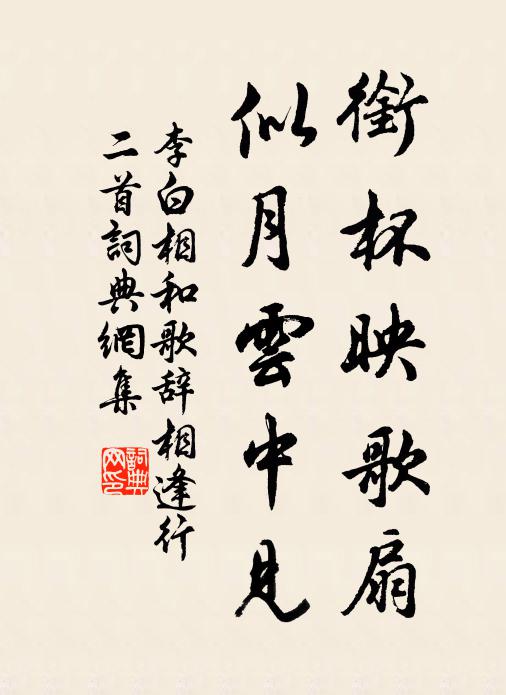 銜杯映歌扇
似月雲中見
李白相和歌辞相逢行
二首詞典網集
詞典
网印